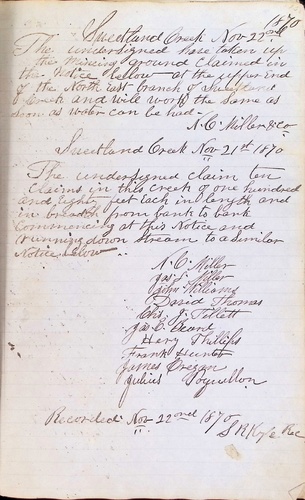 1870
Sweetland Creek Nov 22nd
The undersigned have taken up
the mining ground claimed in
the Notice below at the upper end
of the North East branch of Sweetland
Creek and will work the same as
soon as water can be had.
N. C. Miller & Co
Sweetland Creek Nov 21st 1870
The undersigned claim ten
claims in this creek of one hundred
and eighty feet each in length and
in breadth from bank to bank
Commencing at this Notice and
running down stream to a similar
Notice below
N. C. Miller
Jas. Miller
John Williams
David Thomas
Chs. J. Tillett
Jas. C.
Henry Phillips
Frank Hunter
James Cregan
Julius
Recorded Nov 22nd 1870
Rec